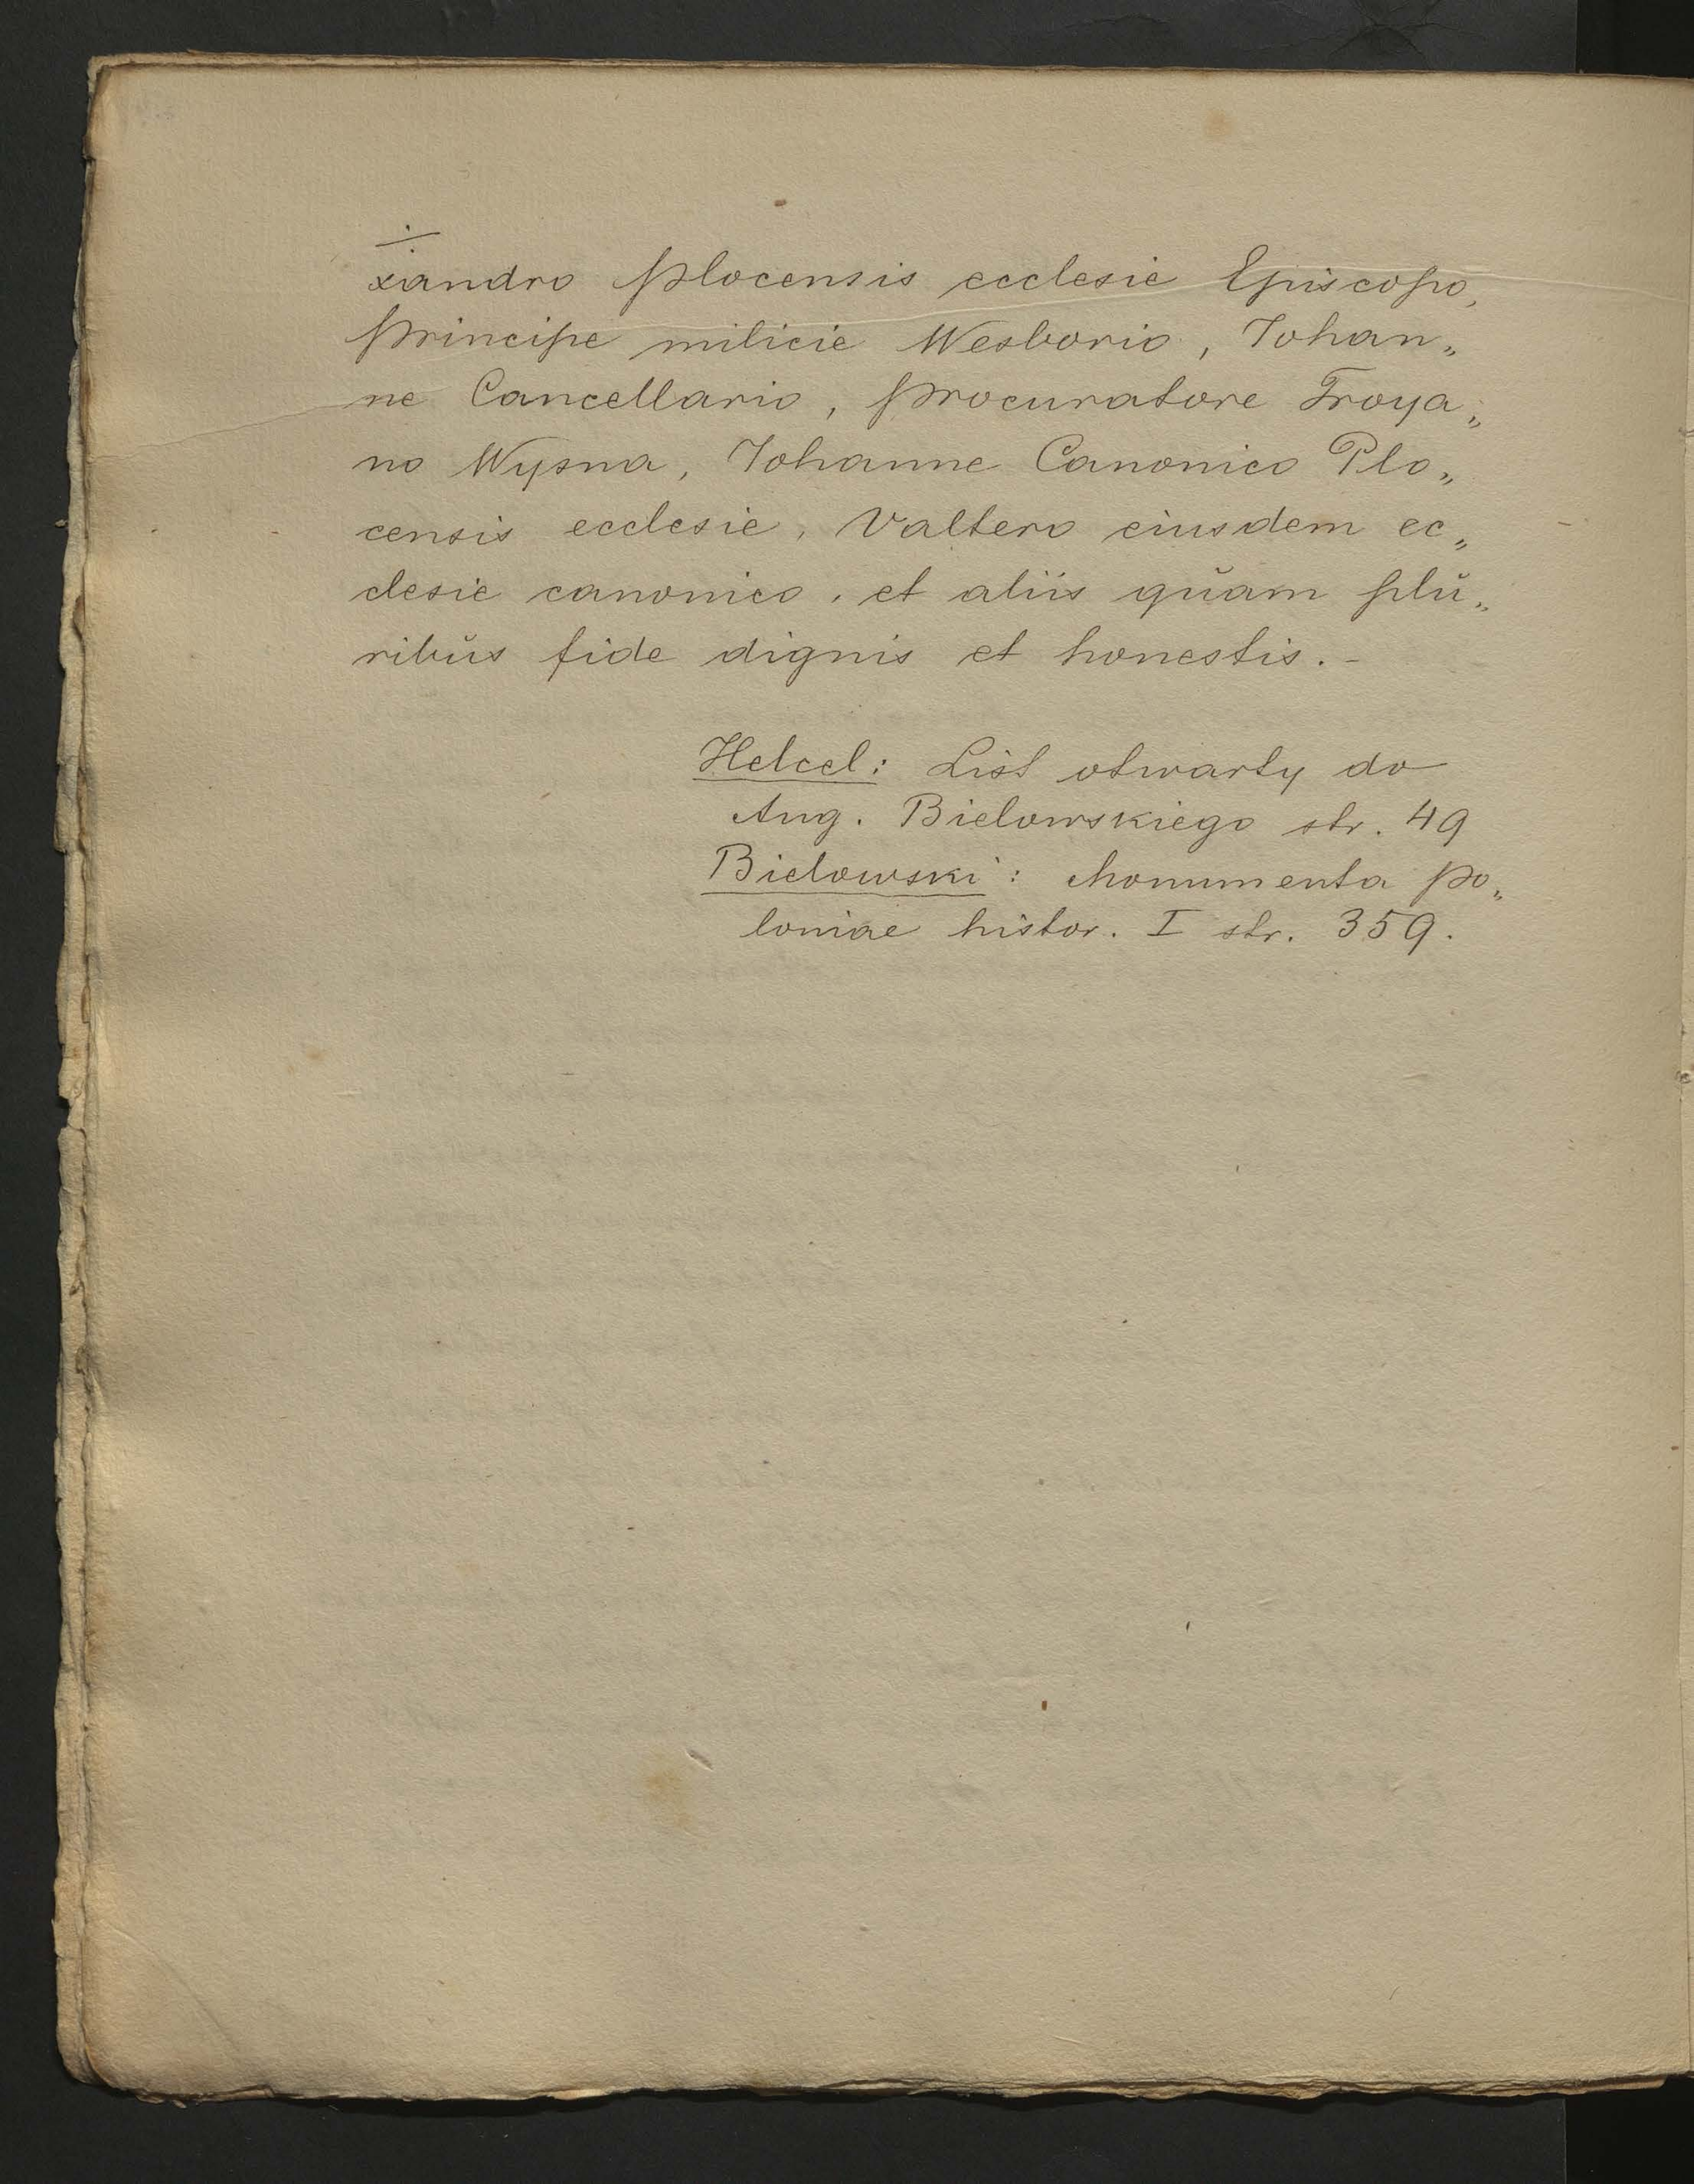 ÷
xandro Plocensis ecclesie Episcopo,
Principe milicie Wesborio, Johan„
ne Cancellario, Procuratore Troya„
no Wysna, Johanne Canonico Plo„
censis ecclesie, Valtero eiusdem ec„
clesie canonico, et aliis quŭam plŭ„
ribŭs fide dignis et honestis. -
Helcel: List otwarty do
Aug. Bielowskiego str. 49
Bielowski: Monumenta Po„
loniae histor. I str. 359.